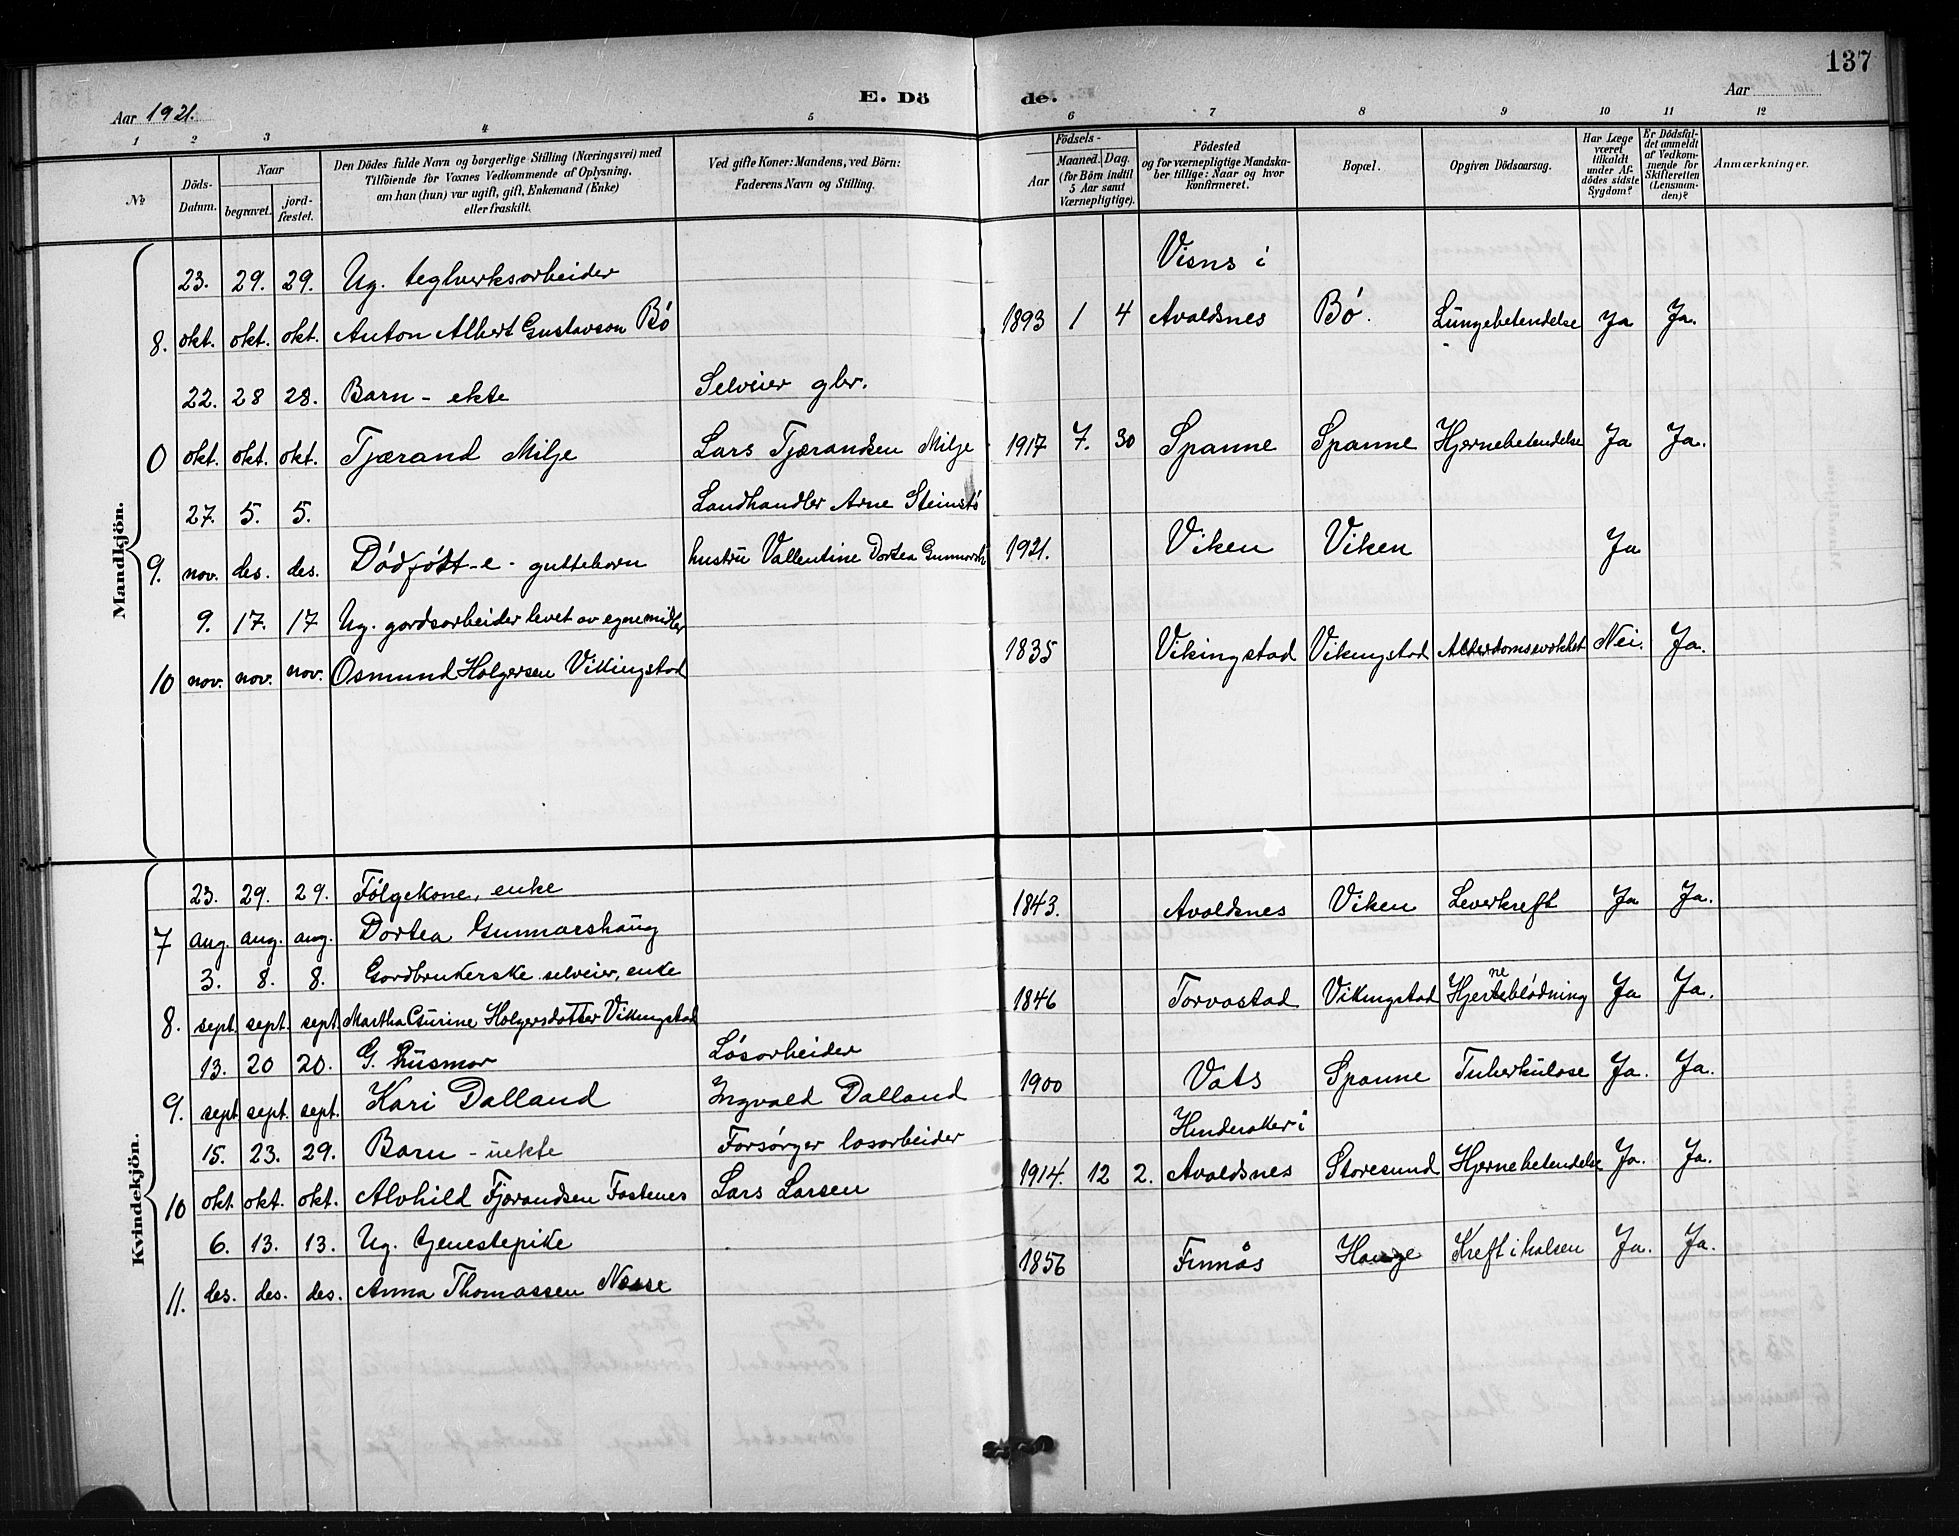 137
Aar 1921.
E. Dö de.
Aar
1 2 3 4 5 6 7 8 9 10 11 12
No
Döds-Datum.
Naar
begravet.
jord-fæstet.
Den Dödes fulde Navn og borgerlige Stilling (Næringsvei) med
Tilföiende for Voxnes Vedkommende af Oplysning,
om han (hun) var ugift, gift, Enkemand (Enke)
eller fraskilt.
Ved gifte Koner: Mandens, ved Börn:
Faderens Navn og Stilling.
Födsels-
Aar
Maaned. Dag.
(for Börn indtil
5 Aar samt
Værnepligtige).
Födested
og for værnepligtige Mandska-
ber tillige: Naar og hvor
konfirmeret.
Bopæl.
Opgiven Dödsaarsag.
Har Læge
været
tilkaldt
under Af-
dödes sidste
Sygdom?
Er Dödsfal-
det anmeldt
af Vedkom-
mende for
Skifteretten
(Lensman-
den)?
Anmærkninger.
Mandkjön.
23. 29. 29. Ug. teglverksarbeider Visns i
8. okt. okt. okt. Anton Albert Gustavson Bö 1893 1 4 Avaldsnes Bö. Lungebetendelse Ja Ja.
22. 28 28. Barn - ekte Selveier gbr.
0 okt. okt. okt. Tjærand Milje Lars Tjærandsen Milje 1917 7. 30 Spanne Spanne Hjernebetendelse Ja Ja.
27. 5. 5. Landhandler Arne Steinstö
9. nov. des. des. Dödfödt - e - guttebarn hustru Vallentine Dortea 1921. Viken Viken Ja
9. 17. 17 Ug. gardsarbeider levet av egne midler
10 nov. nov. nov. Osmund Holgersen Vikingstad 1835 Vikingstad Vikingstad Alderdomssvakhet Nei. Ja.
Kvindekjön.
23. 29. 29. Fölgekone, enke
7 aug. aug. aug. Dortea Gunnarshaug 1843. Avaldsnes Viken Leverkreft Ja Ja.
3. 8. 8. Gardbrukerske selveier, enke
8. sept. sept. sept. Martha Gurine Holgersdatter Vikingstad 1846 Torvastad Vikingstad Hjerneblödning Ja Ja.
13. 20 20. G. husmor Lösarbeider
9. sept sept. sept. Kari Dalland Ingvald Dalland 1900 Vats Spanne Tuberkulose Ja. Ja.
15. 23. 29. Barn - uekte Forsörger losarbeider Hinderaker i
10 okt. okt. okt. Alvhild Tjærandsen Fastenes Lars Larsen 1914. 12 2. Avaldsnes Storesund Hjernebetendelse Ja. Ja.
6. 13. 13. Ug. tjenestepike
11. des. des. des. Anna Thomassen Nesse 1856 Finnås Hauge Kreft i halsen Ja. Ja.